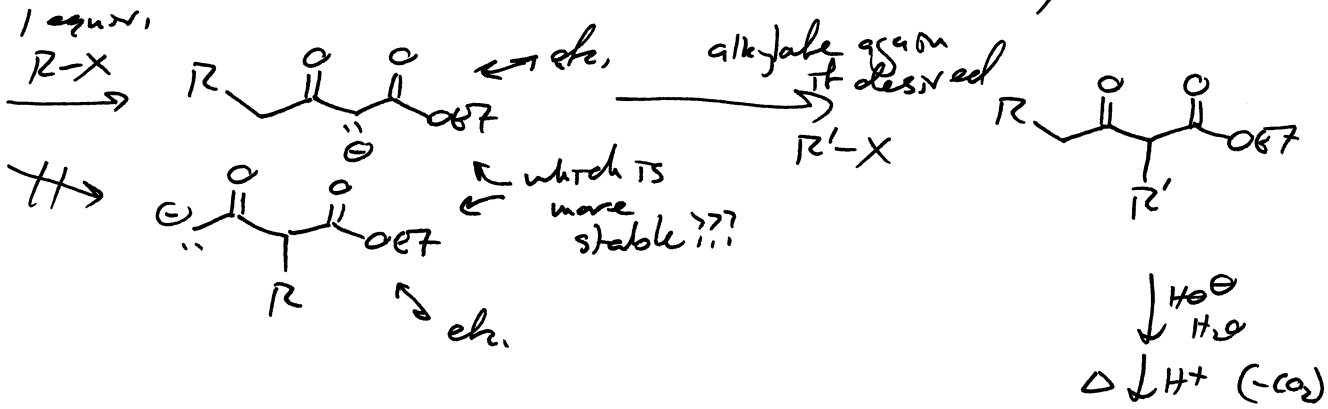 1 equiv.
R-X
R
O
O
OEt
⊖
↔ etc.
alkylate again
if desired
R'-X
R
O
O
OEt
R'
⊖
O
O
OEt
R
which is
more
stable???
etc.
HO⊖
H₂O
Δ H+ (-CO₂)